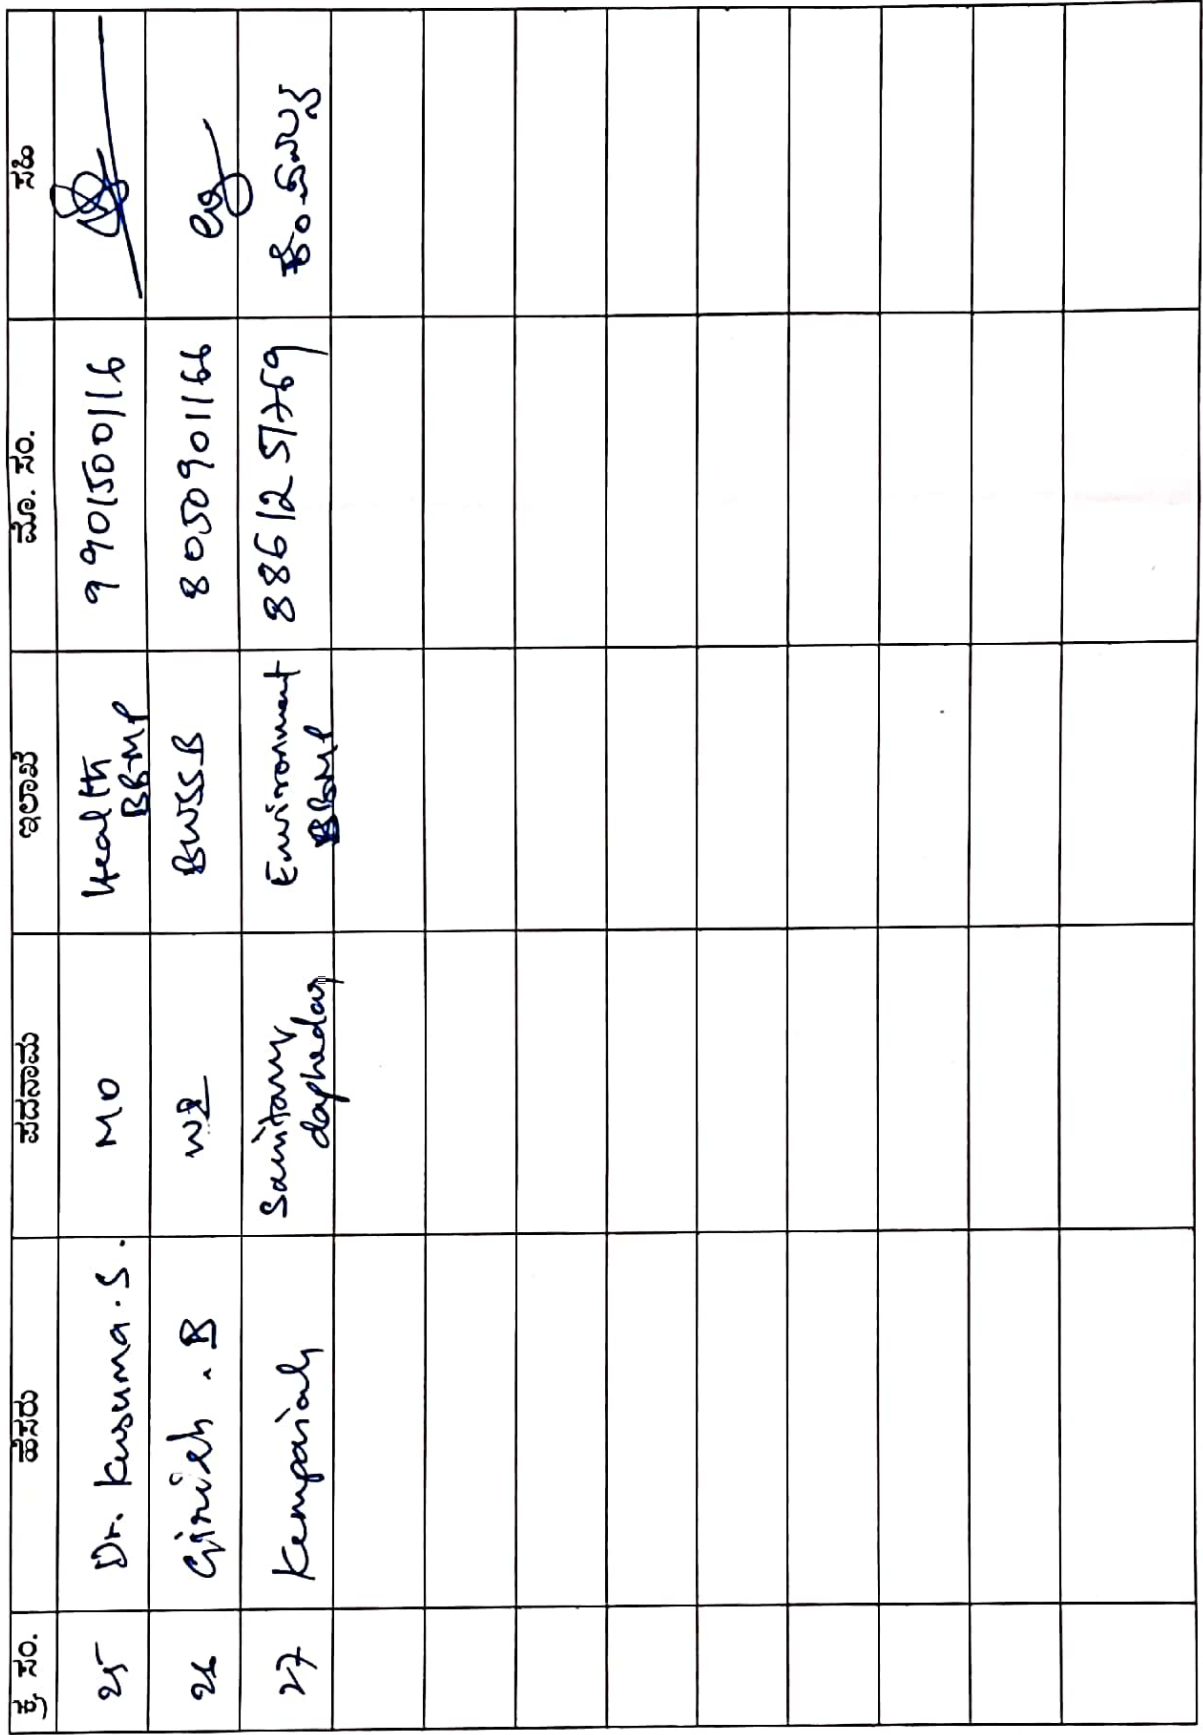 ಕ್ರ ಸಂ. ಹೆಸರು ಪದನಾಮ ಇಲಾಖೆ ಮೊ. ಸಂ. ಸಹಿ
25 Dr. Kusuma.S. MO Health BBMP 9901500116
26 Girish.B BWSSB 8050901166
27 Kempaiah Sanitary daphedar Environment BBMP 8861251769